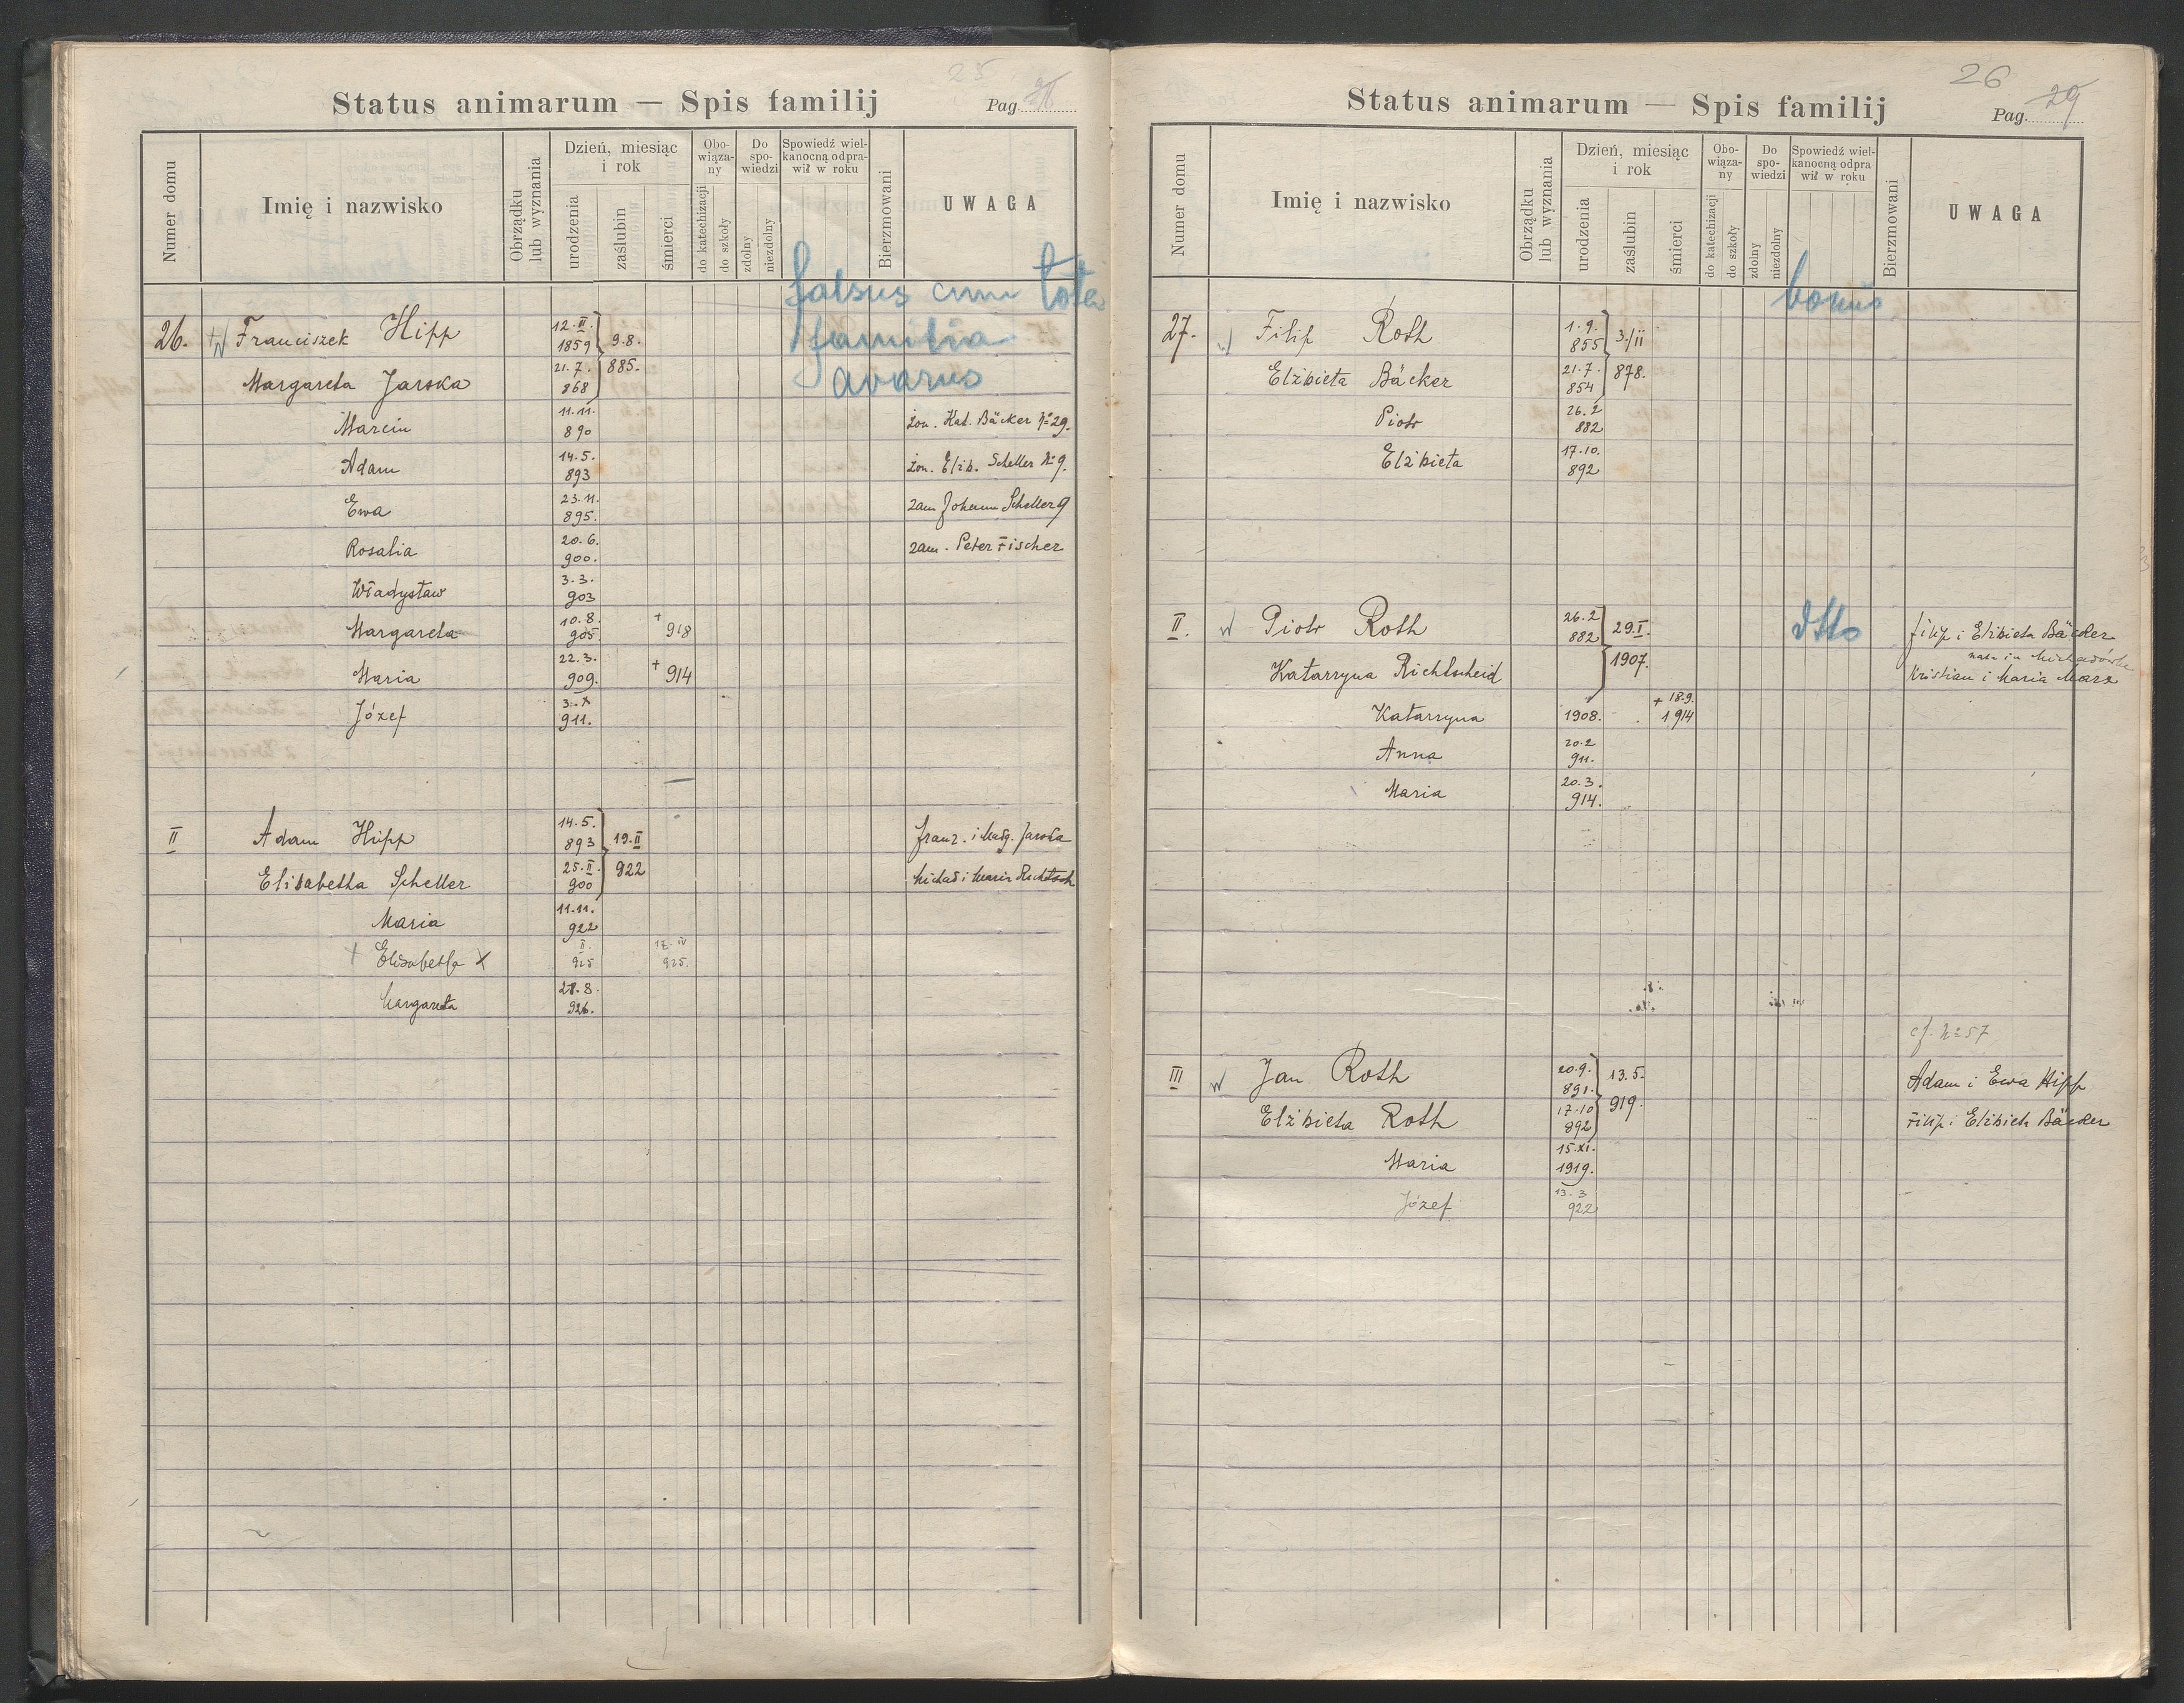 25
Status animarum — Spis familij
Pag.
Numer domu
Imię i nazwisko
Obrządku lub wyznania
Dzień, miesiąc i rok
urodzenia
zaślubin
śmierci
Obowiąza-ny
do katechizacji
do szkoły
Do spo-wiedzi
zdolny
niezdolny
Spowiedź wiel-kanocną odpra-wił w roku
Bierzmowani
UWAGA
falsus cum tota
familia
avarus
26. + w Franciszek Hipp 12.II. 1859 9.8.
Margareta Jarska 21.7. 868 885.
Marcin 11.11. 890 żon. Kat. Bäcker No 29.
Adam 14.5. 893 żon. Elżb. Scheller No 9.
Ewa 23.11. 895. zam Johann Scheller 9
Rosalia 20.6. 900. zam. Peter Fischer
Władysław 3.3. 903
Margareta 10.8. 905. + 918
Maria 22.3. 909. + 914
Józef 3.X 911.
II Adam Hipp 14.5. 893 19.II franz. i Marg. Jarska
Elisabetha Scheller 25.II. 900 922 Michał i Maria Richtsch
Maria 11.11. 922
+ Elisabetha X II. 925 12.IV 925.
Margareta 28.8. 926.
26
Status animarum — Spis familij
Pag. 29
Numer domu
Imię i nazwisko
Obrządku lub wyznania
Dzień, miesiąc i rok
urodzenia
zaślubin
śmierci
Obo-wiąza-ny
do katechizacji
do szkoły
Do spo-wiedzi
zdolny
niezdolny
Spowiedź wiel-kanocną odpra-wił w roku
Bierzmowani
UWAGA
bonus
27. w Filip Roth 1.9. 855 3/II
Elżbieta Bäcker 21.7. 854 878.
Piotr 26.2 882
Elżbieta 17.10. 892
II. w Piotr Roth 26.2 882 29.I. dtto filip i Elżbieta Bäcker
Katarzyna Richtscheid 1907. Kristian i Maria Marx
Katarzyna 1908. + 18.9. 1914
Anna 20.2 911.
Maria 20.3. 914.
cf. No 57
III w Jan Roth 20.9. 891. 13.5. Adam i Ewa Hipp
Elżbieta Roth 17.10 892 919. Filip i Elżbieta Bäcker
Maria 15.XI. 1919.
Józef 13.3 922